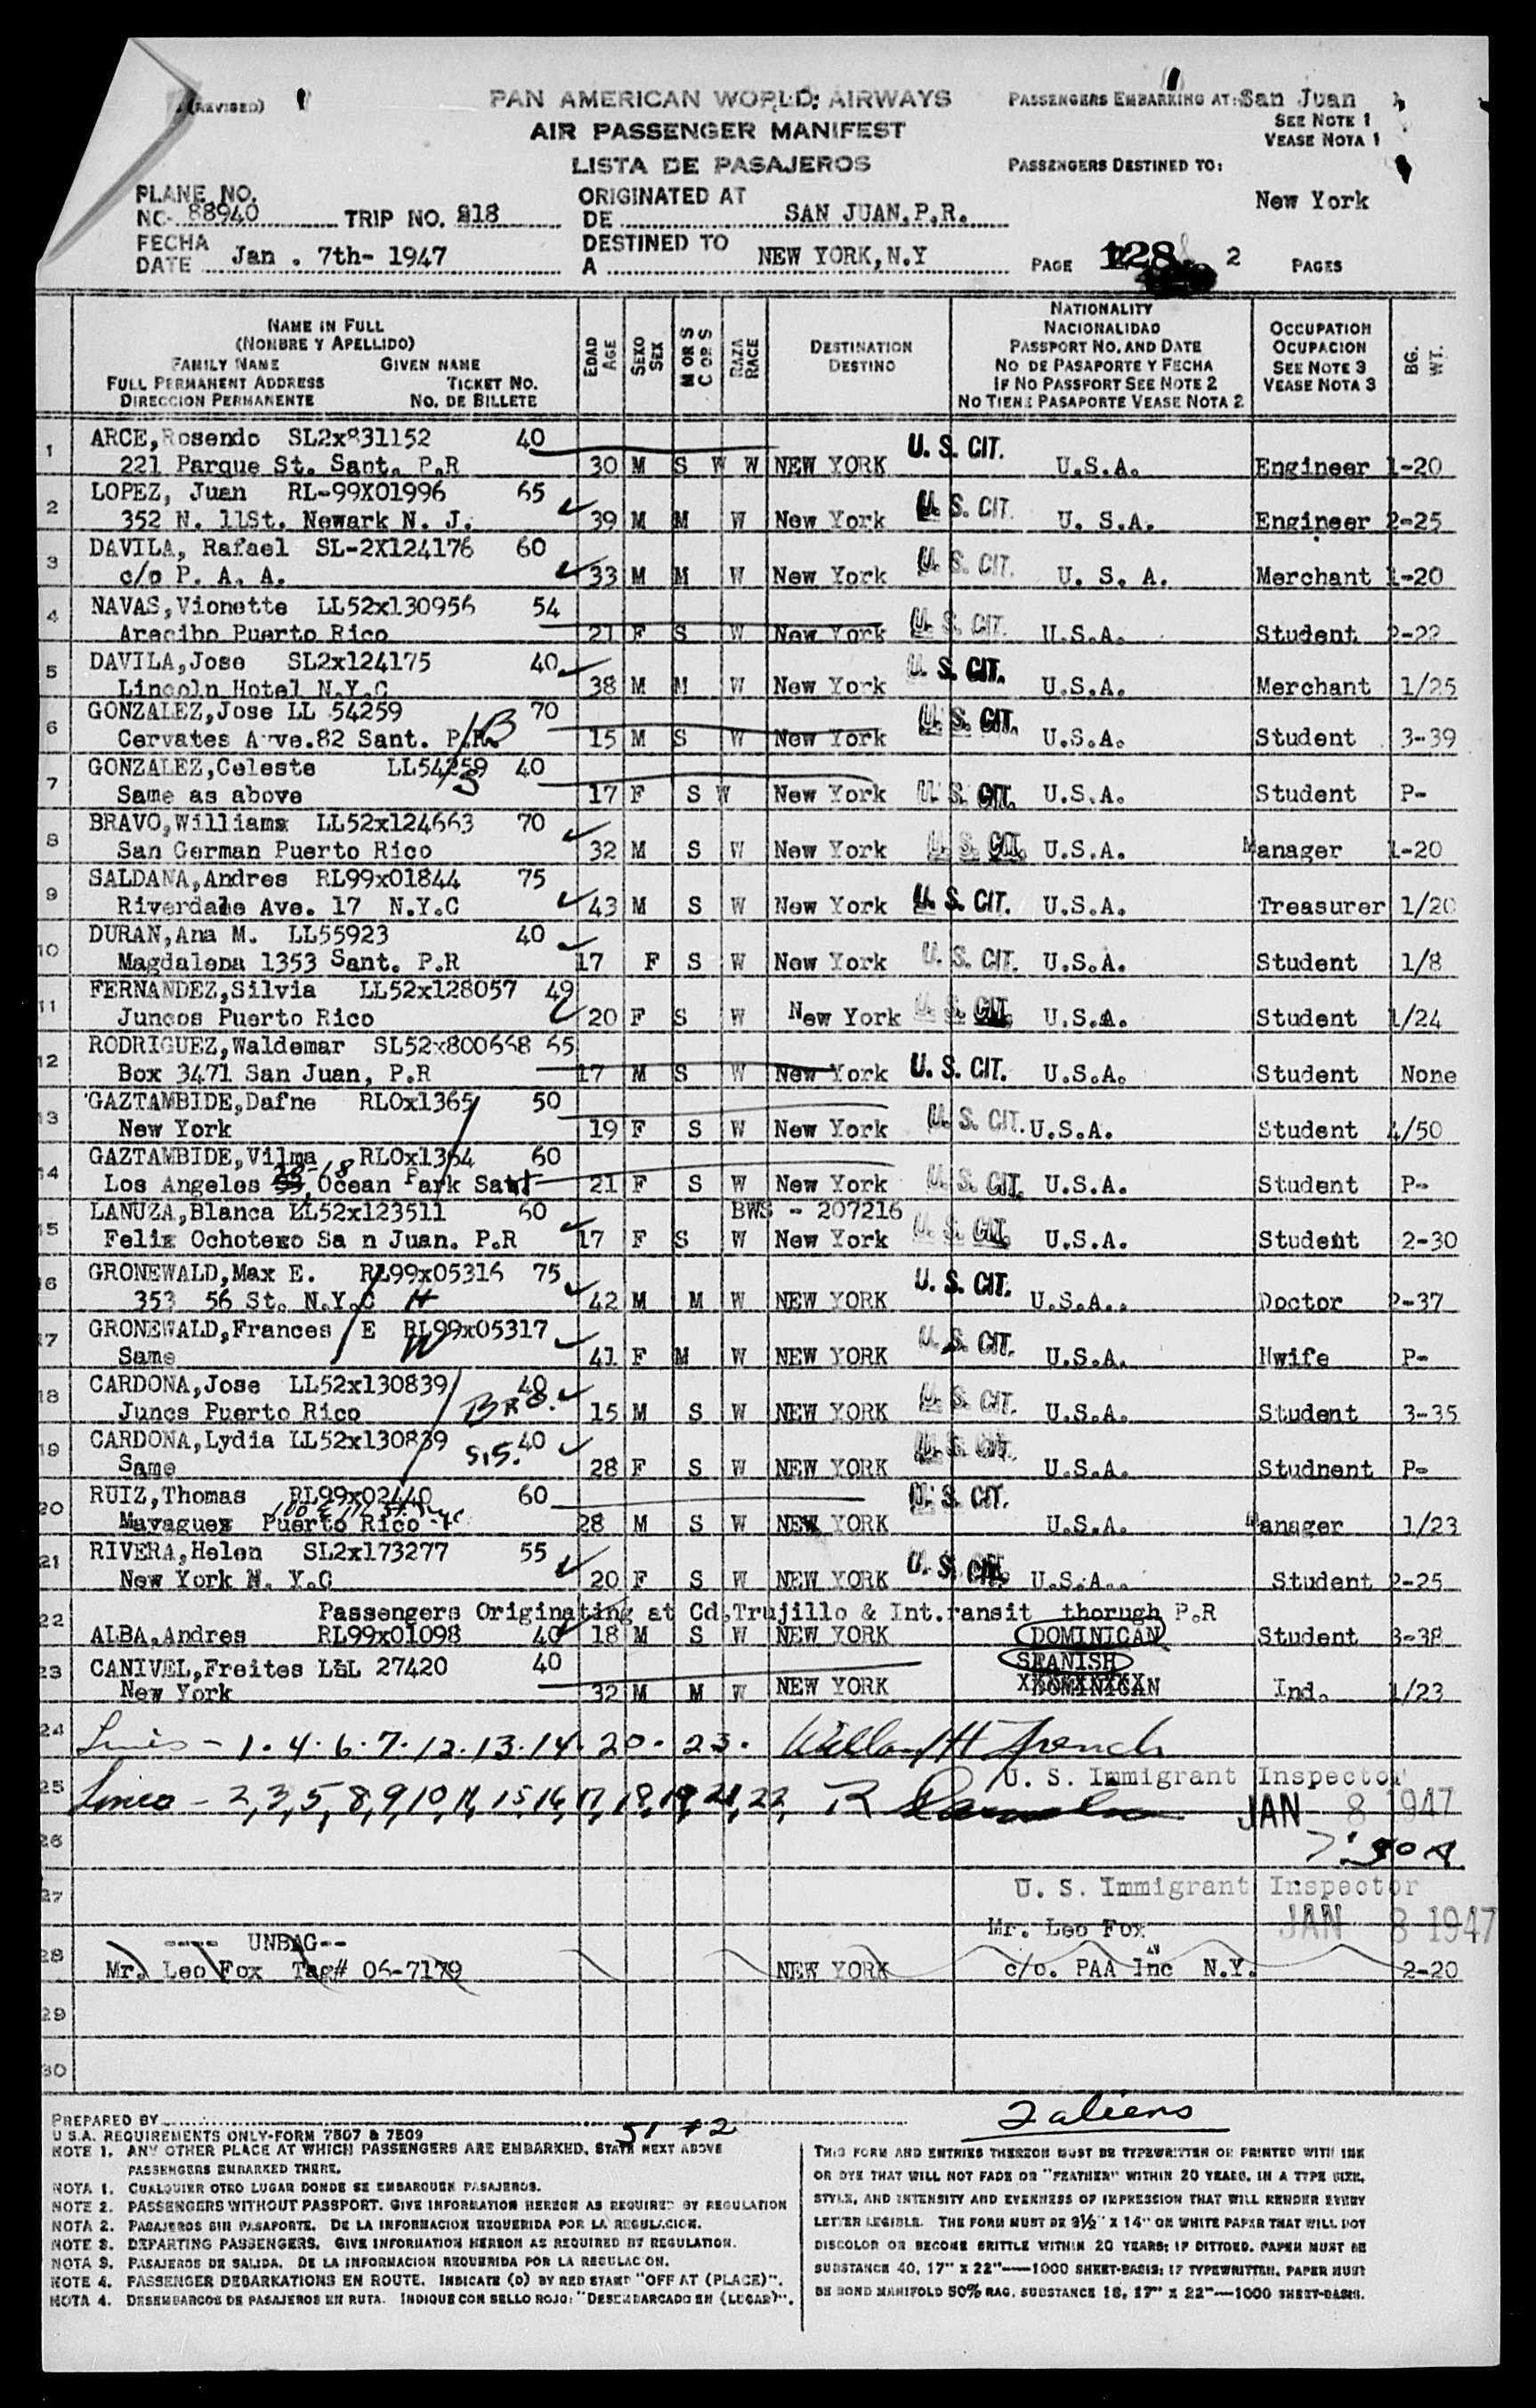 (REVISED)
PAN AMERICAN WORLD AIRWAYS
AIR PASSENGER MANIFEST
LISTA DE PASAJEROS
PASSENGERS EMBARKING AT: San Juan
SEE NOTE 1
VEASE NOTA 1
PASSENGERS DESTINED TO:
New York
PLANE NO.
NC- 88940 TRIP NO. 218
ORIGINATED AT
DE SAN JUAN.P.R.
FECHA
DATE Jan . 7th- 1947
DESTINED TO
A NEW YORK,N.Y
PAGE 128 2 PAGES
NAME IN FULL
(NOMBRE Y APELLIDO)
FAMILY NAME GIVEN NAME
FULL PERMANENT ADDRESS TICKET NO.
DIRECCION PERMANENTE NO. DE BILLETE
EDAD AGE
SEXO SEX
M OR S C OR S
RAZA RACE
DESTINATION
DESTINO
NATIONALITY
NACIONALIDAD
PASSPORT NO. AND DATE
NO DE PASAPORTE Y FECHA
IF NO PASSPORT SEE NOTE 2
NO TIENE PASAPORTE VEASE NOTA 2
OCCUPATION
OCUPACION
SEE NOTE 3
VEASE NOTA 3
BG. WT.
1 ARCE,Rosendo SL2x831152 40 U. S. CIT.
221 Parque St. Sant. P.R 30 M S W W NEW YORK U.S.A. Engineer 1-20
2 LOPEZ, Juan RL-99X01996 65 U. S. CIT.
352 N. 11St. Newark N. J. 39 M M W New York U. S.A. Engineer 2-25
3 DAVILA, Rafael SL-2X124176 60 U. S. CIT.
c/o P. A. A. 33 M M W New York U. S. A. Merchant 1-20
4 NAVAS,Vionette LL52x130956 54 U. S. CIT.
Arecibo Puerto Rico 21 F S W New York U.S.A. Student 2-22
5 DAVILA,Jose SL2x124175 40 U. S. CIT.
Lincoln Hotel N.Y.C 38 M M W New York U.S.A. Merchant 1/25
6 GONZALEZ,Jose LL 54259 70 U. S. CIT.
Cervates A ve.82 Sant. P.R. B 15 M S W New York U.S.A. Student 3-39
7 GONZALEZ,Celeste LL54259 40
Same as above S 17 F S W New York U. S. CIT. U.S.A. Student P-
8 BRAVO,Williams LL52x124663 70
San German Puerto Rico 32 M S W New York U. S. CIT. U.S.A. Manager 1-20
9 SALDANA,Andres RL99x01844 75
Riverdale Ave. 17 N.Y.C 43 M S W New York U. S. CIT. U.S.A. Treasurer 1/20
10 DURAN,Ana M. LL55923 40
Magdalena 1353 Sant. P.R 17 F S W New York U. S. CIT. U.S.A. Student 1/8
11 FERNANDEZ,Silvia LL52x128057 49
Juncos Puerto Rico 20 F S W New York U. S. CIT. U.S.A. Student 1/24
12 RODRIGUEZ,Waldemar SL52x800668 65
Box 3471 San Juan, P.R 17 M S W New York U. S. CIT. U.S.A. Student None
13 GAZTAMBIDE,Dafne RLOx1365 50
New York 19 F S W New York U. S. CIT. U.S.A. Student 4/50
14 GAZTAMBIDE,Vilma RLOx1364 60
Los Angeles , Ocean Park Sant 21 F S W New York U. S. CIT. U.S.A. Student P-
15 LANUZA,Blanca LL52x123511 60 BWS - 207216
Felix Ochotexo Sa n Juan. P.R 17 F S W New York U. S. CIT. U.S.A. Student 2-30
16 GRONEWALD,Max E. RL99x05316 75 U. S. CIT.
353 56 St. N.Y.C H 42 M M W NEW YORK U.S.A.. Doctor 2-37
17 GRONEWALD,Frances E RL99x05317 U. S. CIT.
Same W 41 F M W NEW YORK U.S.A. Hwife P-
18 CARDONA,Jose LL52x130839 40 U. S. CIT.
Juncs Puerto Rico BRO. 15 M S W NEW YORK U.S.A. Student 3-35
19 CARDONA,Lydia LL52x130839 SIS. 40 U. S. CIT.
Same 28 F S W NEW YORK U.S.A. Studnent P-
20 RUIZ,Thomas RL99x02440 60 U. S. CIT.
Mayaguez Puerto Rico 28 M S W NEW YORK U.S.A. Manager 1/23
21 RIVERA,Helen SL2x173277 55 U. S. CIT.
New York N. Y.C 20 F S W NEW YORK U.S.A.. Student 2-25
22 Passengers Originating at Cd.Trujillo & Int.ransit thorugh P.R
ALBA,Andres RL99x01098 40 18 M S W NEW YORK DOMINICAN Student 3-38
23 CANIVEL,Freites L&L 27420 40 SPANISH
New York 32 M M W NEW YORK DOMINICAN Ind. 1/23
24 Lines - 1. 4. 6. 7. 12. 13. 14. 20. 23. Willard H French
U. S. Immigrant Inspector
25 Lines - 2,3,5, 8,9,10,11, 15,16,17, 18,19,21,22, R
JAN 8 1947
26
27 U. S. Immigrant Inspector
Mr. Leo Fox JAN 8 1947
28 ---- UNBAG--
Mr. Leo Fox Tag# 06-7179 NEW YORK c/o. PAA Inc N.Y. 2-20
29
30
2 aliens
PREPARED BY
51 + 2
U.S.A. REQUIREMENTS ONLY-FORM 7507 & 7509
NOTE 1. ANY OTHER PLACE AT WHICH PASSENGERS ARE EMBARKED, STATE NEXT ABOVE
PASSENGERS EMBARKED THERE.
NOTA 1. CUALQUIER OTRO LUGAR DONDE SE EMBARQUEN PASAJEROS.
NOTE 2. PASSENGERS WITHOUT PASSPORT. GIVE INFORMATION HEREON AS REQUIRED BY REGULATION
NOTA 2. PASAJEROS SIN PASAPORTE. DE LA INFORMACION REQUERIDA POR LA REGULACION.
NOTE 3. DEPARTING PASSENGERS. GIVE INFORMATION HEREON AS REQUIRED BY REGULATION.
NOTA 3. PASAJEROS DE SALIDA. DE LA INFORMACION REQUERIDA POR LA REGULACION.
NOTE 4. PASSENGER DEBARKATIONS EN ROUTE. INDICATE (D) BY RED STAMP "OFF AT (PLACE)".
NOTA 4. DESEMBARCOS DE PASAJEROS EN RUTA. INDIQUE CON SELLO ROJO: "DESEMBARCADO EN (LUGAR)".
THIS FORM AND ENTRIES THEREON MUST BE TYPEWRITTEN OR PRINTED WITH INK
OR DYE THAT WILL NOT FADE OR "FEATHER" WITHIN 20 YEARS, IN A TYPE SIZE,
STYLE, AND INTENSITY AND EVENNESS OF IMPRESSION THAT WILL RENDER EVERY
LETTER LEGIBLE. THE FORM MUST BE 8½" X 14" ON WHITE PAPER THAT WILL NOT
DISCOLOR OR BECOME BRITTLE WITHIN 20 YEARS; IF DITTOED, PAPER MUST BE
SUBSTANCE 40, 17" X 22"—1000 SHEET-BASIS; IF TYPEWRITTEN, PAPER MUST
BE BOND MANIFOLD 50% RAG, SUBSTANCE 18, 17" X 22"—1000 SHEET-BASIS.